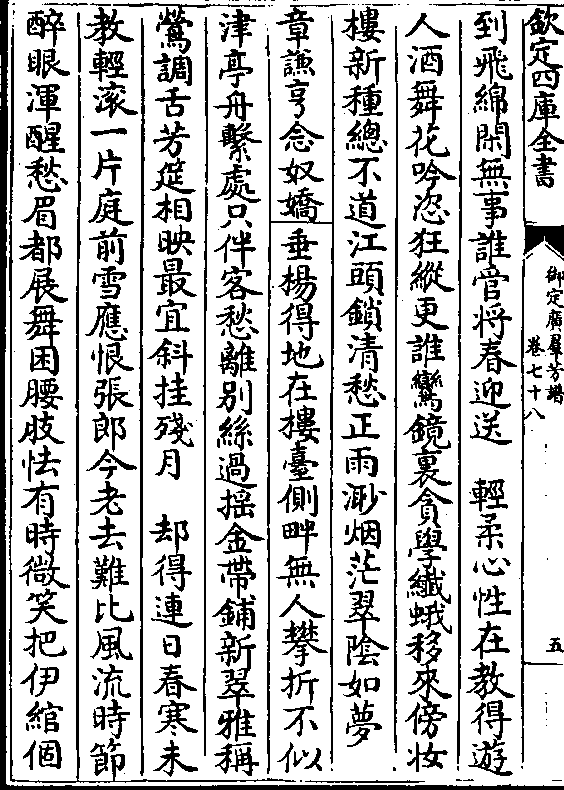 欽定四庫全書
御定廣羣芳譜
卷七十八
五
到飛綿閑無事誰管将春迎送　輕柔心性在教得遊
人酒舞花吟恣狂縱更誰鸞鏡裏貪學纎蛾移來傍妝
樓新種總不道江頭鎖清愁正雨渺烟茫翠陰如夢
章謙亨念奴嬌垂楊得地在樓臺側畔無人攀折不似
津亭舟繫處只伴客愁離别絲過揺金帶鋪新翠雅稱
鶯調舌芳筵相映最宜斜挂殘月　却得連日春寒未
教輕滚一片庭前雪應恨張郎今老去難比風流時節
醉眼渾醒愁眉都展舞困腰肢怯有時微笑把伊綰個